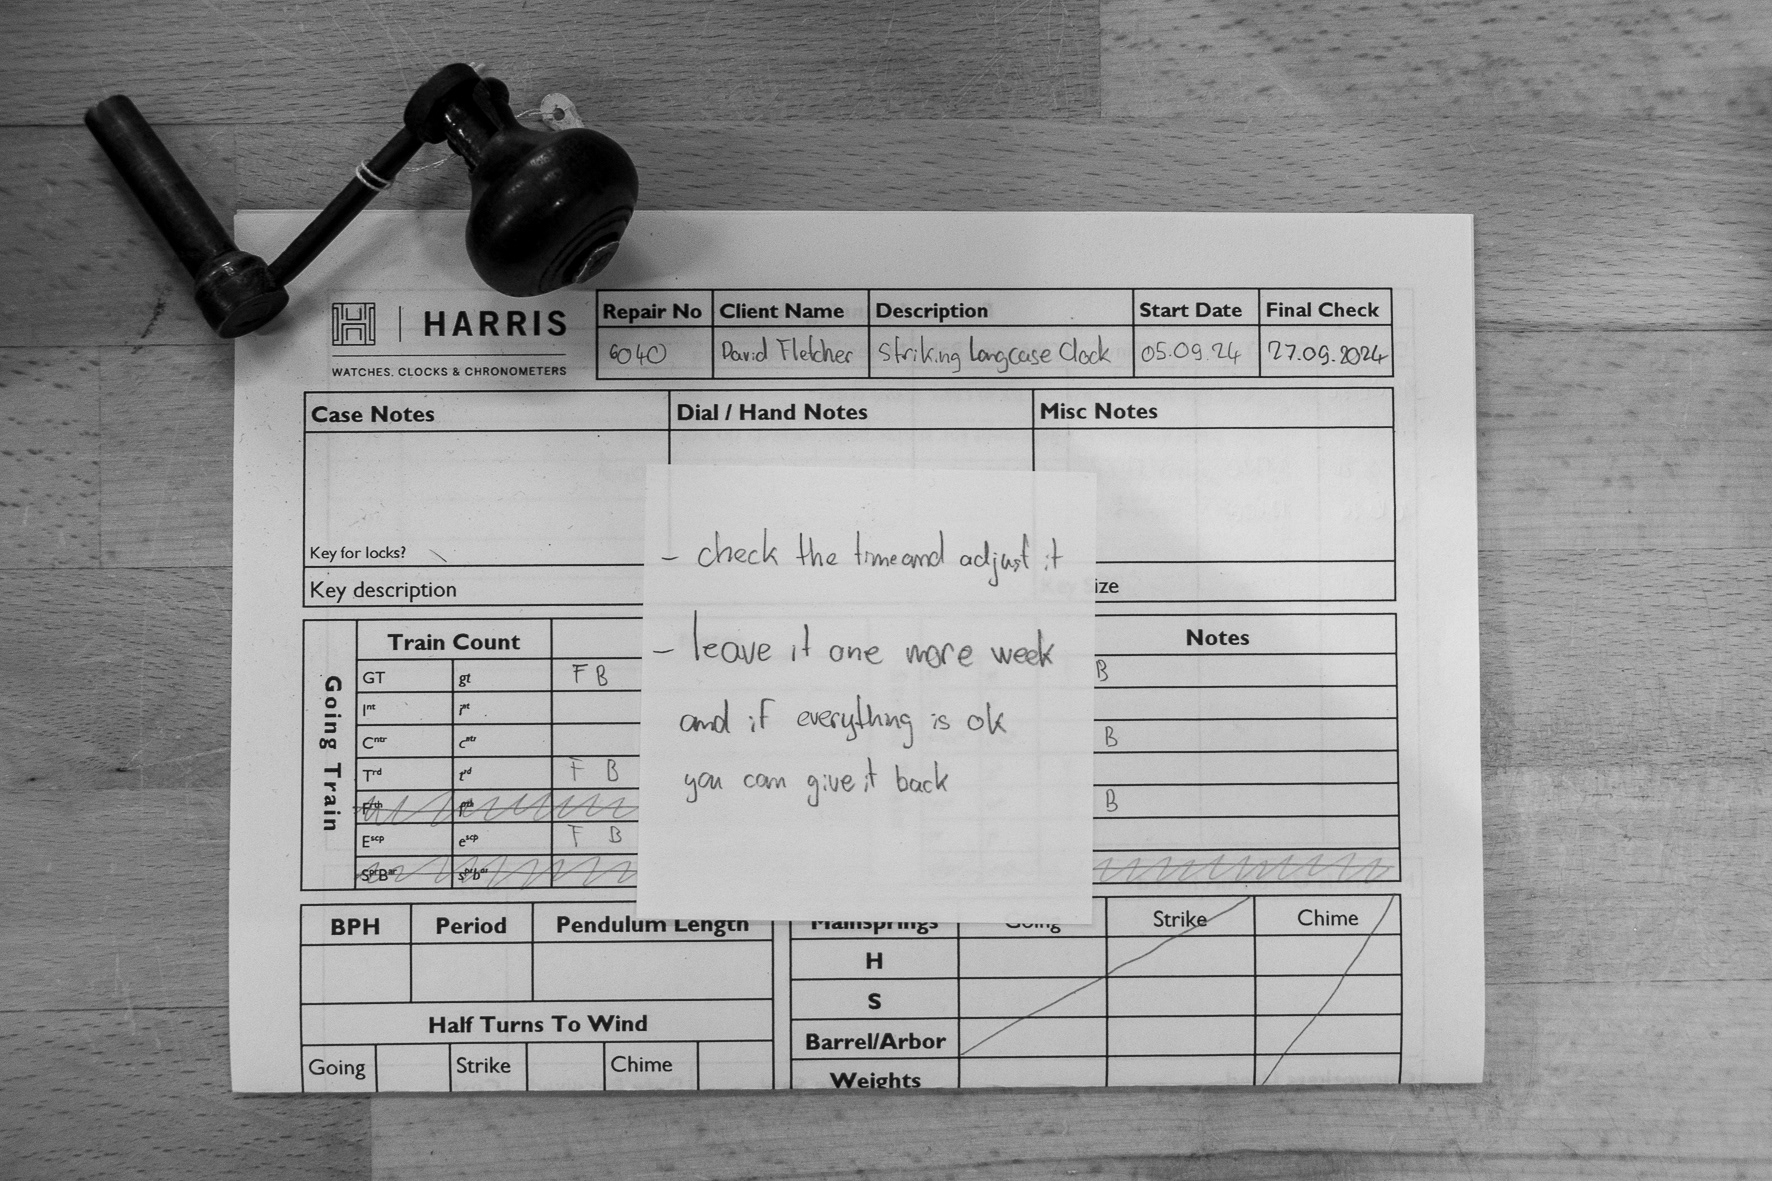 HARRIS
WATCHES, CLOCKS & CHRONOMETERS
Repair No Client Name Description Start Date Final Check
6040 David Fletcher Striking Longcase Clock 05.09.24 27.09.2024
Case Notes Dial / Hand Notes Misc Notes
Key for locks?
Key description ize
- check the time and adjust it
- leave it one more week
and if everything is ok
you can give it back
Going Train
Train Count Notes
GT gt F B B
Int int
Cntr cntr B
Trd trd F B
B
Escp escp F B
SprBar sprbar
BPH Period Pendulum Length
Mainsprings Going Strike Chime
H
S
Barrel/Arbor
Weights
Half Turns To Wind
Going Strike Chime